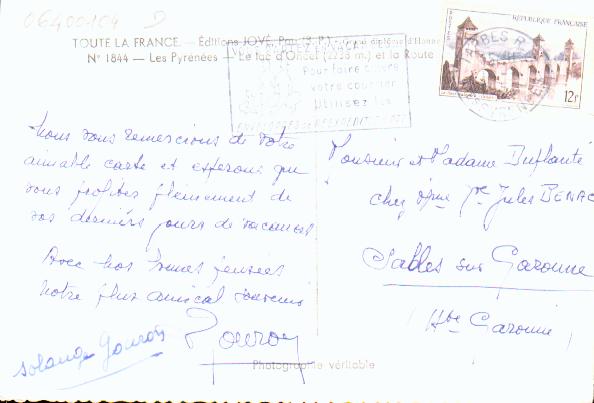 06400104 D
TOUTE LA FRANCE. — Éditions JOVÉ, Pau (B.-P.) diplôme d'Honneur
N° 1844 — Les Pyrénées — Le lac d'Oncet (2238 m.) et la Route
VOUS PARTEZ EN VACANCES
Pour faire suivre
votre courrier
Utilisez les
ENVELOPPES DE RÉEXPÉDITION
POSTES
REPUBLIQUE FRANÇAISE
12F
TARBES
Nous vous remercions de votre
aimable carte et espérons que
vous profitez pleinement de
vos derniers jours de vacances
Avec nos bonnes pensées
notre plus amical souvenir
Solange
Monsieur et Madame Duflanté
chez Mme Jules BENAC
Sables sur Garonne
Hte Garonne
Photographie véritable